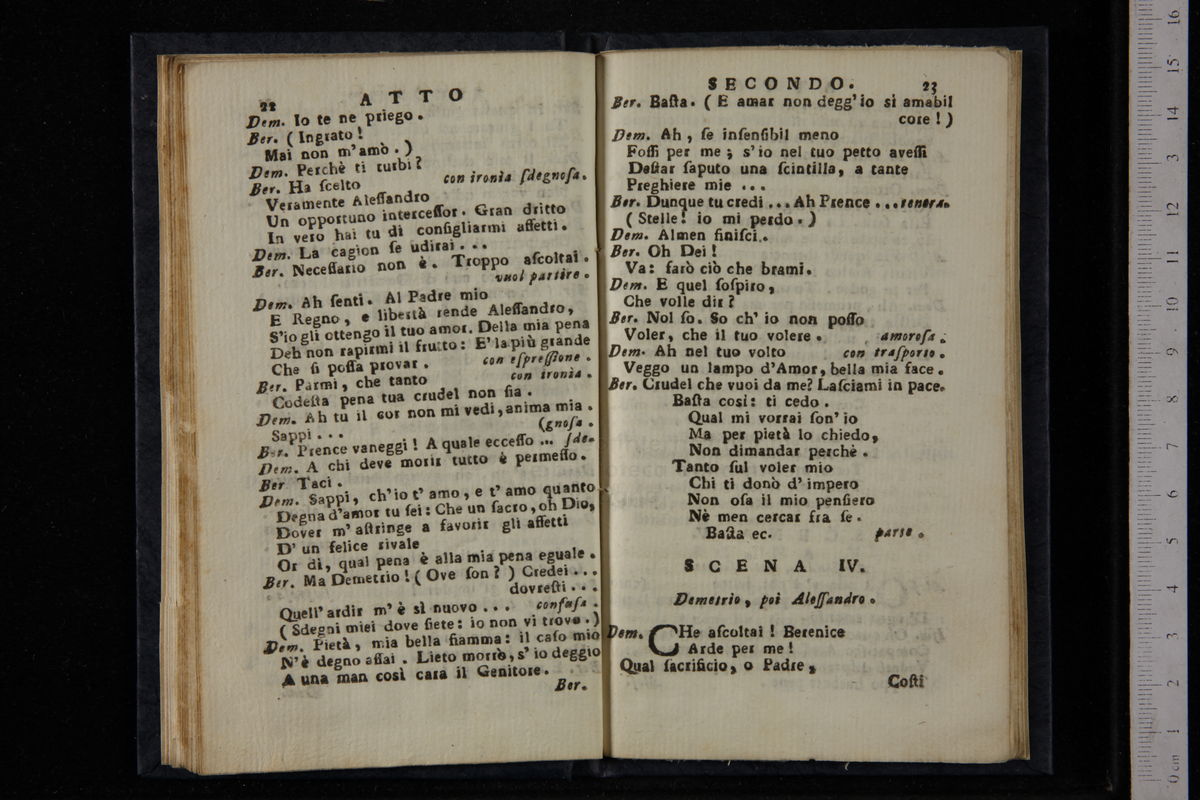 22
ATTO
Dem. Io te ne priego.
Ber. (Ingrato!
Mai non m'amò.)
Dem. Perchè ti turbi?
Ber. Ha ſcelto con ironìa ſdegnoſa.
Veramente Aleſſandro
Un opportuno interceſſor. Gran dritto
In vero hai tu di conſigliarmi affetti.
Dem. La cagion ſe udirai...
Ber. Neceſſario non è. Troppo aſcoltai.
vuol partire.
Dem. Ah ſenti. Al Padre mio
E Regno, e libertà rende Aleſſandro,
S'io gli ottengo il tuo amor. Della mia pena
Deh non rapirmi il frutto: E' la più grande
Che ſi poſſa provar. con eſpreſſione.
Ber. Parmi, che tanto con ironìa.
Codeſta pena tua crudel non ſia.
Dem. Ah tu il cor non mi vedi, anima mia.
Sappi... (gnoſa.
Ber. Prence vaneggi! A quale ecceſſo... ſde-
Dem. A chi deve morir tutto è permeſſo.
Ber Taci.
Dem. Sappi, ch'io t'amo, e t'amo quanto
Degna d'amor tu ſei: Che un ſacro, oh Dio,
Dover m'aſtringe a favorir gli affetti
D'un felice rivale
Or di, qual pena è alla mia pena eguale.
Ber. Ma Demetrio! (Ove ſon?) Credei...
dovreſti...
Quell'ardir m'è sì nuovo... confuſa.
(Sdegni miei dove ſiete: io non vi trovo.)
Dem. Pietà, mia bella fiamma: il caſo mio
N'è degno aſſai. Lieto morrò, s'io deggio
A una man così cara il Genitore.
Ber.
SECONDO.
23
Ber. Baſta. (E amar non degg'io sì amabil
core!)
Dem. Ah, ſe inſenſibil meno
Foſſi per me; s'io nel tuo petto aveſſi
Deſtar ſaputo una ſcintilla, a tante
Preghiere mie...
Ber. Dunque tu credi... Ah Prence... tenera.
(Stelle! io mi perdo.)
Dem. Almen finiſci..
Ber. Oh Dei!
Va: farò ciò che brami.
Dem. E quel ſoſpiro,
Che volle dir?
Ber. Nol ſo. So ch'io non poſſo
Voler, che il tuo volere. amoroſa.
Dem. Ah nel tuo volto con traſporto.
Veggo un lampo d'Amor, bella mia face.
Ber. Crudel che vuoi da me? Laſciami in pace.
Baſta così: ti cedo.
Qual mi vorrai ſon'io
Ma per pietà lo chiedo,
Non dimandar perchè.
Tanto ſul voler mio
Chi ti donò d'impero
Non oſa il mio penſiero
Nè men cercar fra ſe.
Baſta ec. parte.
SCENA IV.
Demetrio, poi Aleſſandro.
Dem. CHe aſcoltai! Berenice
Arde per me!
Qual ſacrificio, o Padre,
Coſti
0 cm 1 2 3 4 5 6 7 8 9 10 11 12 13 14 15 16